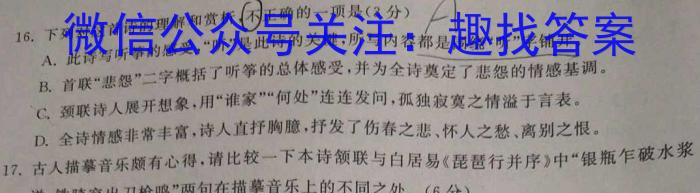 16. 下
的理解和赏析,不正确的一项是(3分)
微信公众号关注:趣找答案
A. 此诗写听筝的感受,“听”是此诗的关
B. 首联“悲怨”二字概括了听筝的总体感受,并为全诗奠定了悲怨的情感基调。
C. 颈联诗人展开想象,用“谁家”“何处”连连发问,孤独寂寞之情溢于言表。
D. 全诗情感非常丰富,诗人直抒胸臆,抒发了伤春之悲、怀人之愁、离别之恨。
17. 古人描摹音乐颇有心得,请比较一下本诗颔联与白居易《琵琶行并序》中“银瓶乍破水浆
铁骑突出刀枪鸣”两句在描摹音乐上的不同之处。(6分)